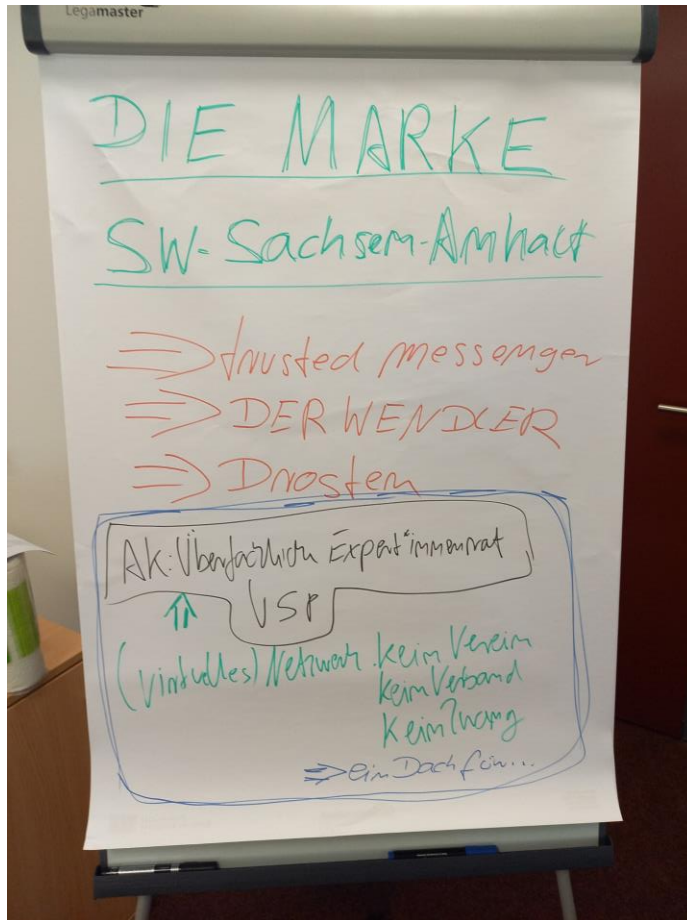 Legamaster
DIE MARKE
SW-Sachsen-Anhalt
⇒ trusted messenger
⇒ DER WENDLER
⇒ Drosten
AK: Überfachlich Expert*innenrat
USP
(virtuelles) Netzwerk. kein Verein
kein Verband
Kein Zwang
⇒ ein Dach für...